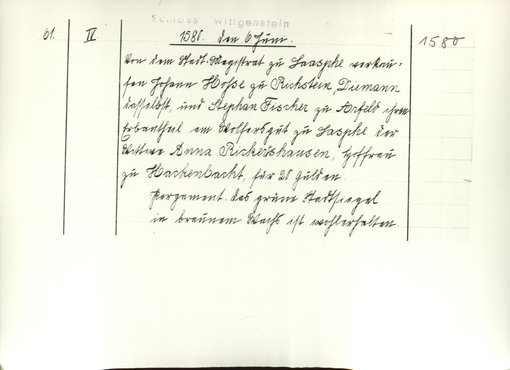 Schloss Wittgenstein
61. IV. 1580. den 6 Juni. 1580
Von dem Stadt-Magistrat zu Laasphe verkau-
fen Johann Hosse zu Rückstein, Diemann
daselbst, und Stephan Fischer zu Arfeld ihren
Erbantheil am Wolfersgut zu Lasphe der
Wittwe Anna Rickershausen, Hoffrau
zu Hackenbacht, für 20 Gulden.
Pergament. das grüne Stadtsiegel
in braunem Wachs ist wohlerhalten.